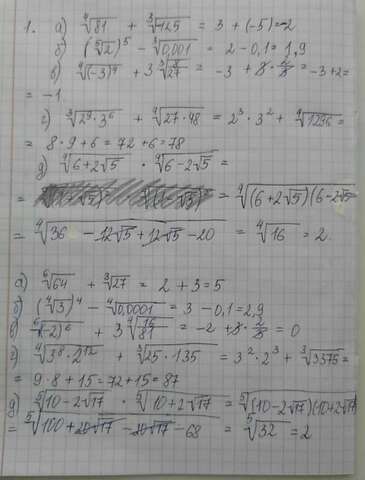 1. а) ⁴√81 + ³√-125 = 3 + (-5) = -2
б) (⁵√2)⁵ - ³√0,001 = 2 - 0,1 = 1,9
в) ⁴√(-3)⁴ + 3 ³√8/27 = -3 + 3 · 2/3 = -3 + 2 =
= -1
г) ³√2⁹ · 3⁶ + ⁴√27 · 48 = 2³ · 3² + ⁴√1296 =
= 8 · 9 + 6 = 72 + 6 = 78
д) ⁴√6 + 2√5 · ⁴√6 - 2√5 =
= ⁴√(6 + 2√5)(6 - 2√5
= ⁴√36 - 12√5 + 12√5 - 20 = ⁴√16 = 2.
а) ⁶√64 + ³√27 = 2 + 3 = 5
б) (⁴√3)⁴ - ⁴√0,0001 = 3 - 0,1 = 2,9
в) ⁶√(-2)⁶ + 3 ⁴√16/81 = -2 + 3 · 2/3 = 0
г) ⁴√3⁸ · 2¹² + ³√25 · 135 = 3² · 2³ + ³√3375 =
= 9 · 8 + 15 = 72 + 15 = 87
д) ⁵√10 - 2√17 · ⁵√10 + 2√17 = ⁵√(10 - 2√17)(10 + 2√17
⁵√100 + 20√17 - 20√17 - 68 = ⁵√32 = 2